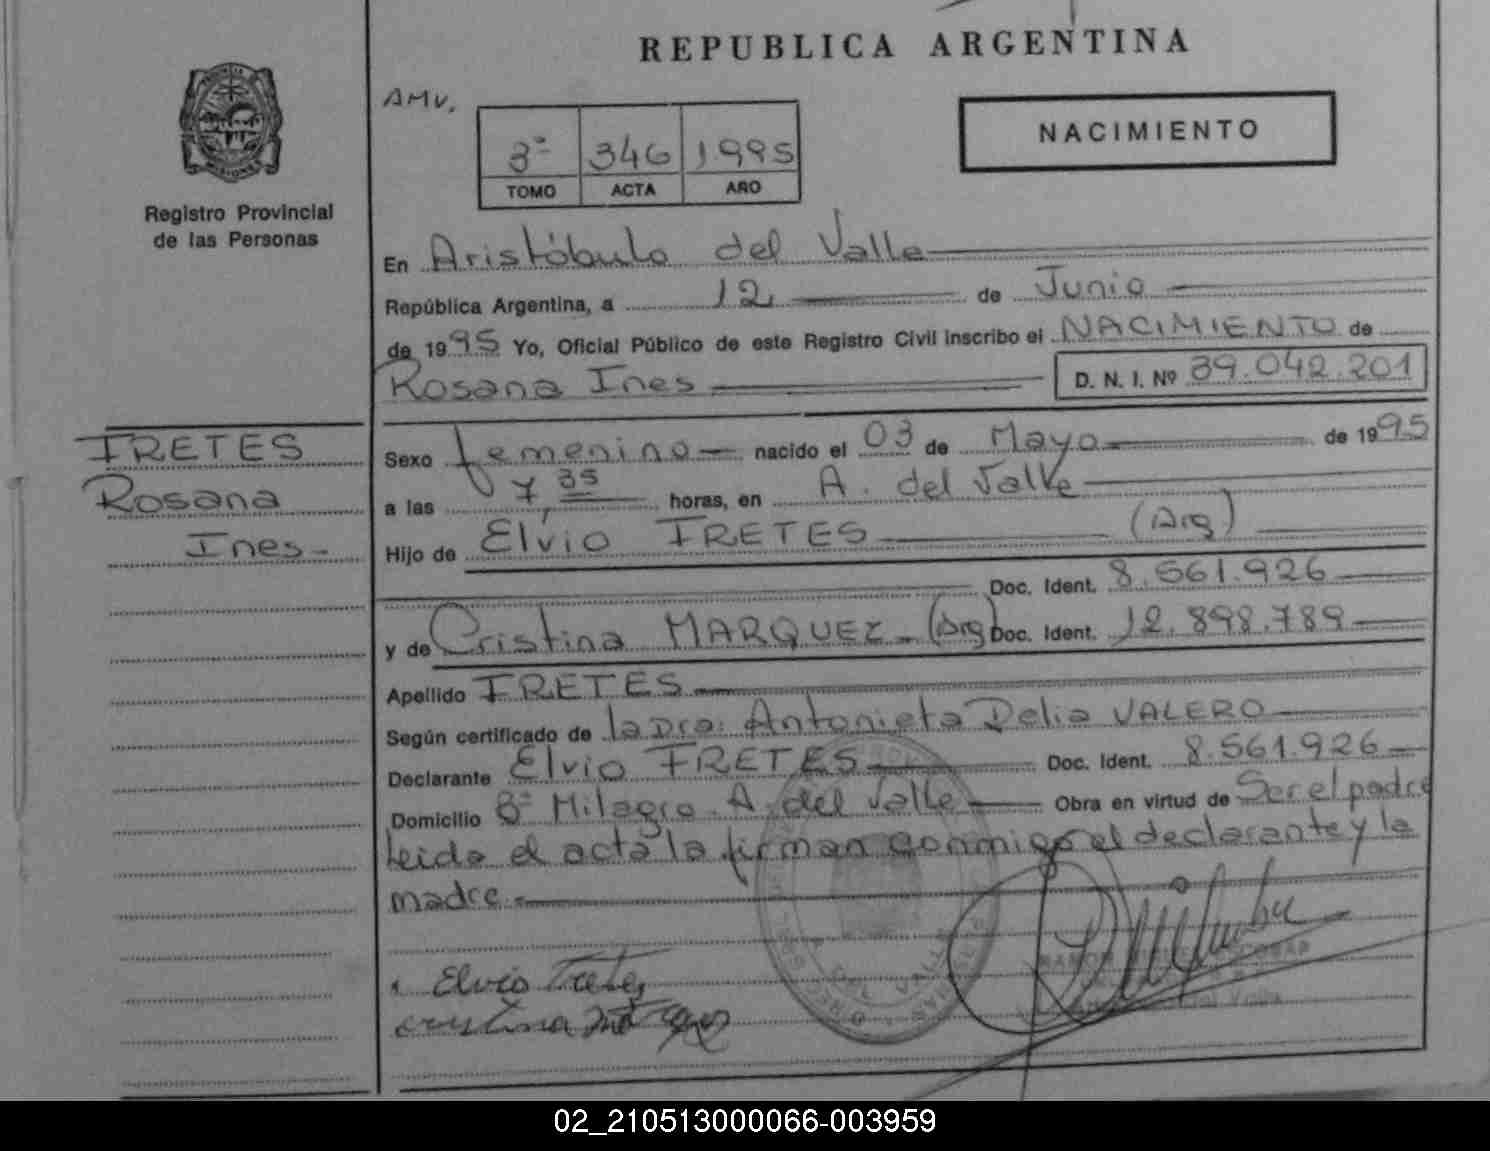 REPUBLICA ARGENTINA
AMV.
NACIMIENTO
3º 346 1995
TOMO ACTA AÑO
PROVINCIA DE MISIONES
Registro Provincial
de las Personas
En Aristóbulo del Valle
República Argentina, a 12 de Junio
de 1995 Yo, Oficial Público de este Registro Civil inscribo el NACIMIENTO de
Rosana Ines D. N. I. Nº 39.042.201
FRETES
Rosana
Ines.-
Sexo femenino nacido el 03 de Mayo de 1995
a las 7,35 horas, en A. del Valle
Hijo de Elvio FRETES (Arg)
Doc. Ident. 8.561.926
y de Cristina MARQUEZ (Arg) Doc. Ident. 12.898.789
Apellido FRETES
Según certificado de la Dra: Antonieta Delia VALERO
Declarante Elvio FRETES Doc. Ident. 8.561.926
Domicilio Bº Milagro A. del Valle Obra en virtud de Ser el padre
Leida el acta la firman conmigo el declarante y la
madre.
Elvio Fretes
cristina
del Valle
02_210513000066-003959